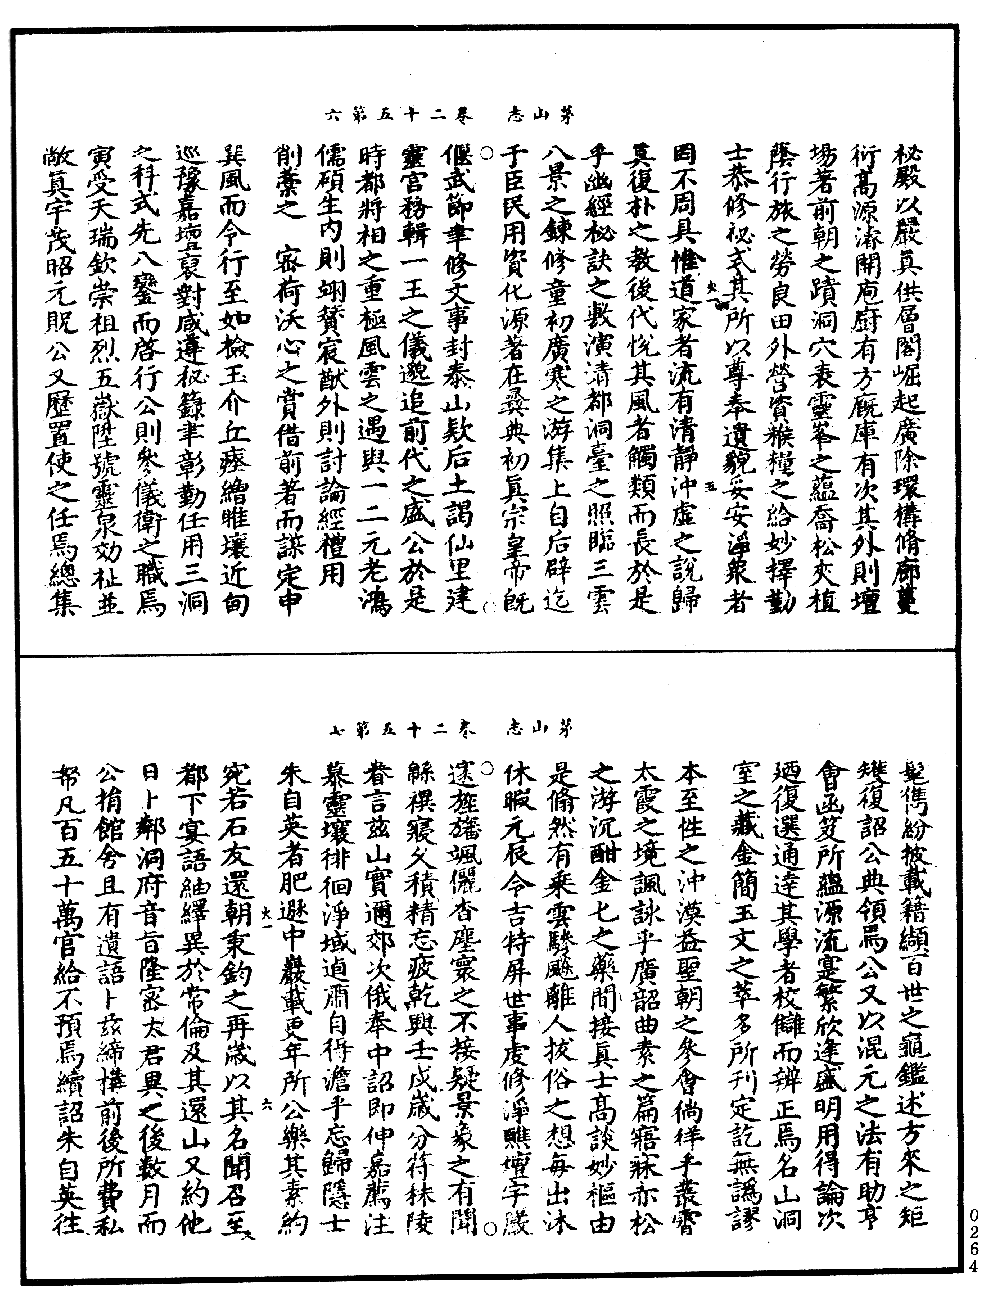 茅山志　卷二十五第六
秘殿以嚴真供層閣崛起廣除環構脩廊蔓
衍高源濬開庖廚有方廄庫有次其外則壇
場著前朝之蹟洞穴表靈峯之蘊喬松夾植
蔭行旅之勞良田外營資糇糧之給妙擇勤
士恭修祕式其所以尊奉遺貌妥安淨衆者
罔不周具惟道家者流有清靜沖虛之說歸
真復朴之教後代悅其風者觸類而長於是
乎幽經秘訣之敷演清都洞臺之照臨三雲
八景之鍊修童初廣寒之游集上自后辟迄
于臣民用資化源著在彞典初真宗皇帝旣
偃武節聿修文事封泰山欵后土謁仙里建
靈宮務輯一王之儀邈追前代之盛公於是
時都將相之重極風雲之遇與一二元老鴻
儒碩生內則翊賛宸猷外則討論經禮用
削藁之　宻荷沃心之賞借前著而謀定申
巽風而令行至如檢玉介丘瘞繒睢壤近甸
巡豫嘉壇裒對咸遵秘錄聿彰勤任用三洞
之科式先八鑾而啓行公則參儀衛之職焉
寅受天瑞欽崇祖烈五嶽陞號靈泉効祉並
敞真宇茂昭元貺公又歷置使之任焉總集
茅山志　卷二十五第七
髦儁紛披載籍纈百世之龜鑑述方來之矩
矱復詔公典領焉公又以混元之法有助亨
會函笈所蘊源流寔繁欣逢盛明用得論次
廼復選通達其學者校讎而辨正焉名山洞
室之藏金簡玉文之萃多所刊定訖無譌謬
本至性之沖漠益聖朝之參會倘徉乎叢霄
太霞之境諷詠乎廣韶曲素之篇寤寐赤松
之游沉酣金匕之藥間接真士高談妙樞由
是翛然有乗雲騄飈離人拔俗之想每出沐
休暇元辰令吉特屏世事虔修淨醮壇宇嚴
邃旌旛颯儷杳塵寰之不接疑景象之有聞
緜禩寢久積精忘疲乾興壬戌歲分符秣陵
眷言兹山實邇郊次俄奉中詔即伸嘉薦注
慕靈壤徘徊淨域逌肅自得澹乎忘歸隱士
朱自英者肥遯中巖載更年所公樂其素約
宛若石友還朝秉鈞之再歲以其名聞召至
都下宴語紬繹異於常倫及其還山又約他
日卜鄰洞府音旨隆宻太君異之後数月而
公捐館舍且有遺語卜兹締搆前後所費私
帑凡百五十萬官給不預焉續詔朱自英往
火一
五
火一
六
0264